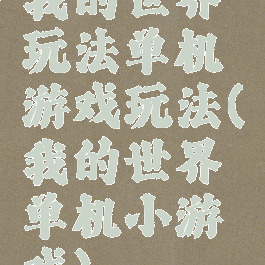 我的世界
玩法单机
游戏玩法(
我的世界
单机小游
戏)